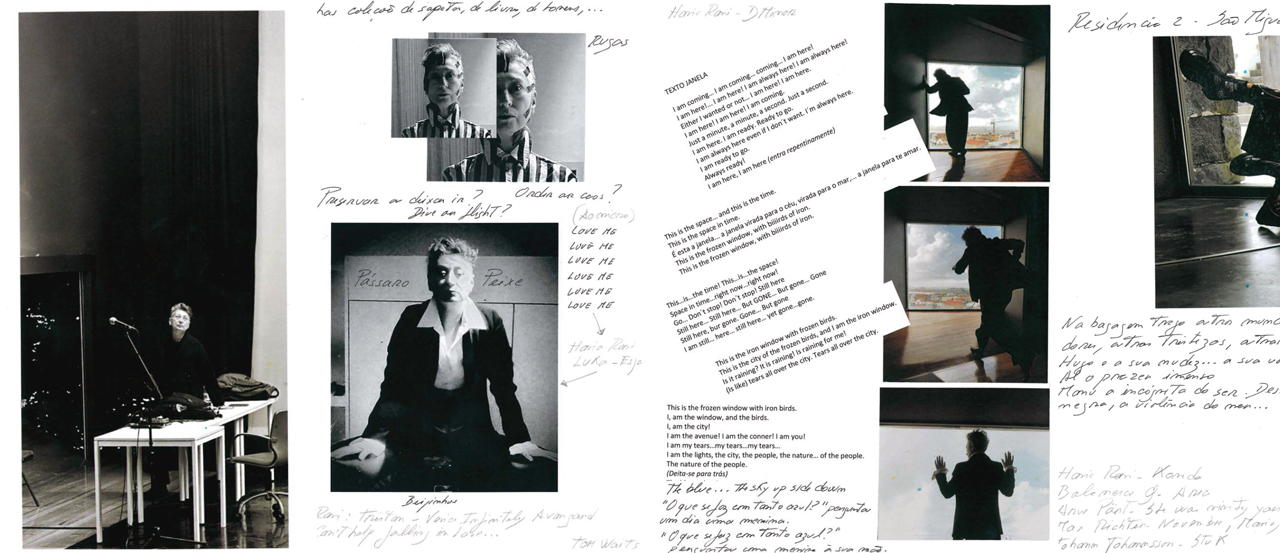 has coleções de sapatos, de livros, de homens,...
Rugas
Preservar ou deixar ir? Ordem ou caos?
Dive or flight?
(Ao micro)
LOVE ME
LOVE ME
LOVE ME
LOVE ME
LOVE ME
LOVE ME
Hania Rani
Luka - Esja
Pássaro Peixe
Beijinhos
Rani: Tristan -
Can't help falling in love...
Tom Waits
Hania Rani - D Minor
TEXTO JANELA
I am coming... I am coming... coming... I am here!
I am here!... I am here! I am always here! I am always here!
Either I wanted or not... I am here! I am here.
I am here! I am here! I am coming.
Just a minute, a minute, a second. Just a second.
I am here. I am ready. Ready to go.
I am always here even if I don´t want. I´m always here.
I am ready to go.
Always ready!
I am here, I am here (entra repentinamente)
This is the space... and this is the time.
This is the space in time.
É esta a janela... a janela virada para o céu, virada para o mar,... a janela para te amar.
This is the frozen window, with biiiirds of iron.
This is the frozen window, with biiiirds of iron.
This...is...the time! This...is...the space!
Space in time...right now...right now!
Go... Don´t stop! Don´t stop! Still here
Still here... Still here... But GONE... But gone... Gone
Still here, bur gone. Gone... But gone
I am still... here... still here... yet gone...gone.
This is the iron window with frozen birds.
This is the city of the frozen birds, and I am the iron window.
Is it raining? It is raining! Is raining for me!
(Is like) tears all over the city. Tears all over the city.
This is the frozen window with iron birds.
I, am the window, and the birds.
I, am the city!
I am the avenue! I am the conner! I am you!
I am my tears...my tears...my tears...
I am the lights, the city, the people, the nature... of the people.
The nature of the people.
(Deita-se para trás)
The blue... The sky up side down
"O que se faz com tanto azul?" perguntou
um dia uma menina.
"O que se faz com tanto azul?"
perguntou uma menina à sua mãe.
Residência 2 - São Migu
Na bagagem trago outro
dores, outras tristezas, outra
Hugo e a sua mudez... a sua
Ao o prazer imenso
Manu a incógnita do ser. Des
negra, a violência do mar...
Hania Rani -
Balmorhea
Arvo Pärt - She was
Max Richter November,
Johann Johannsson -